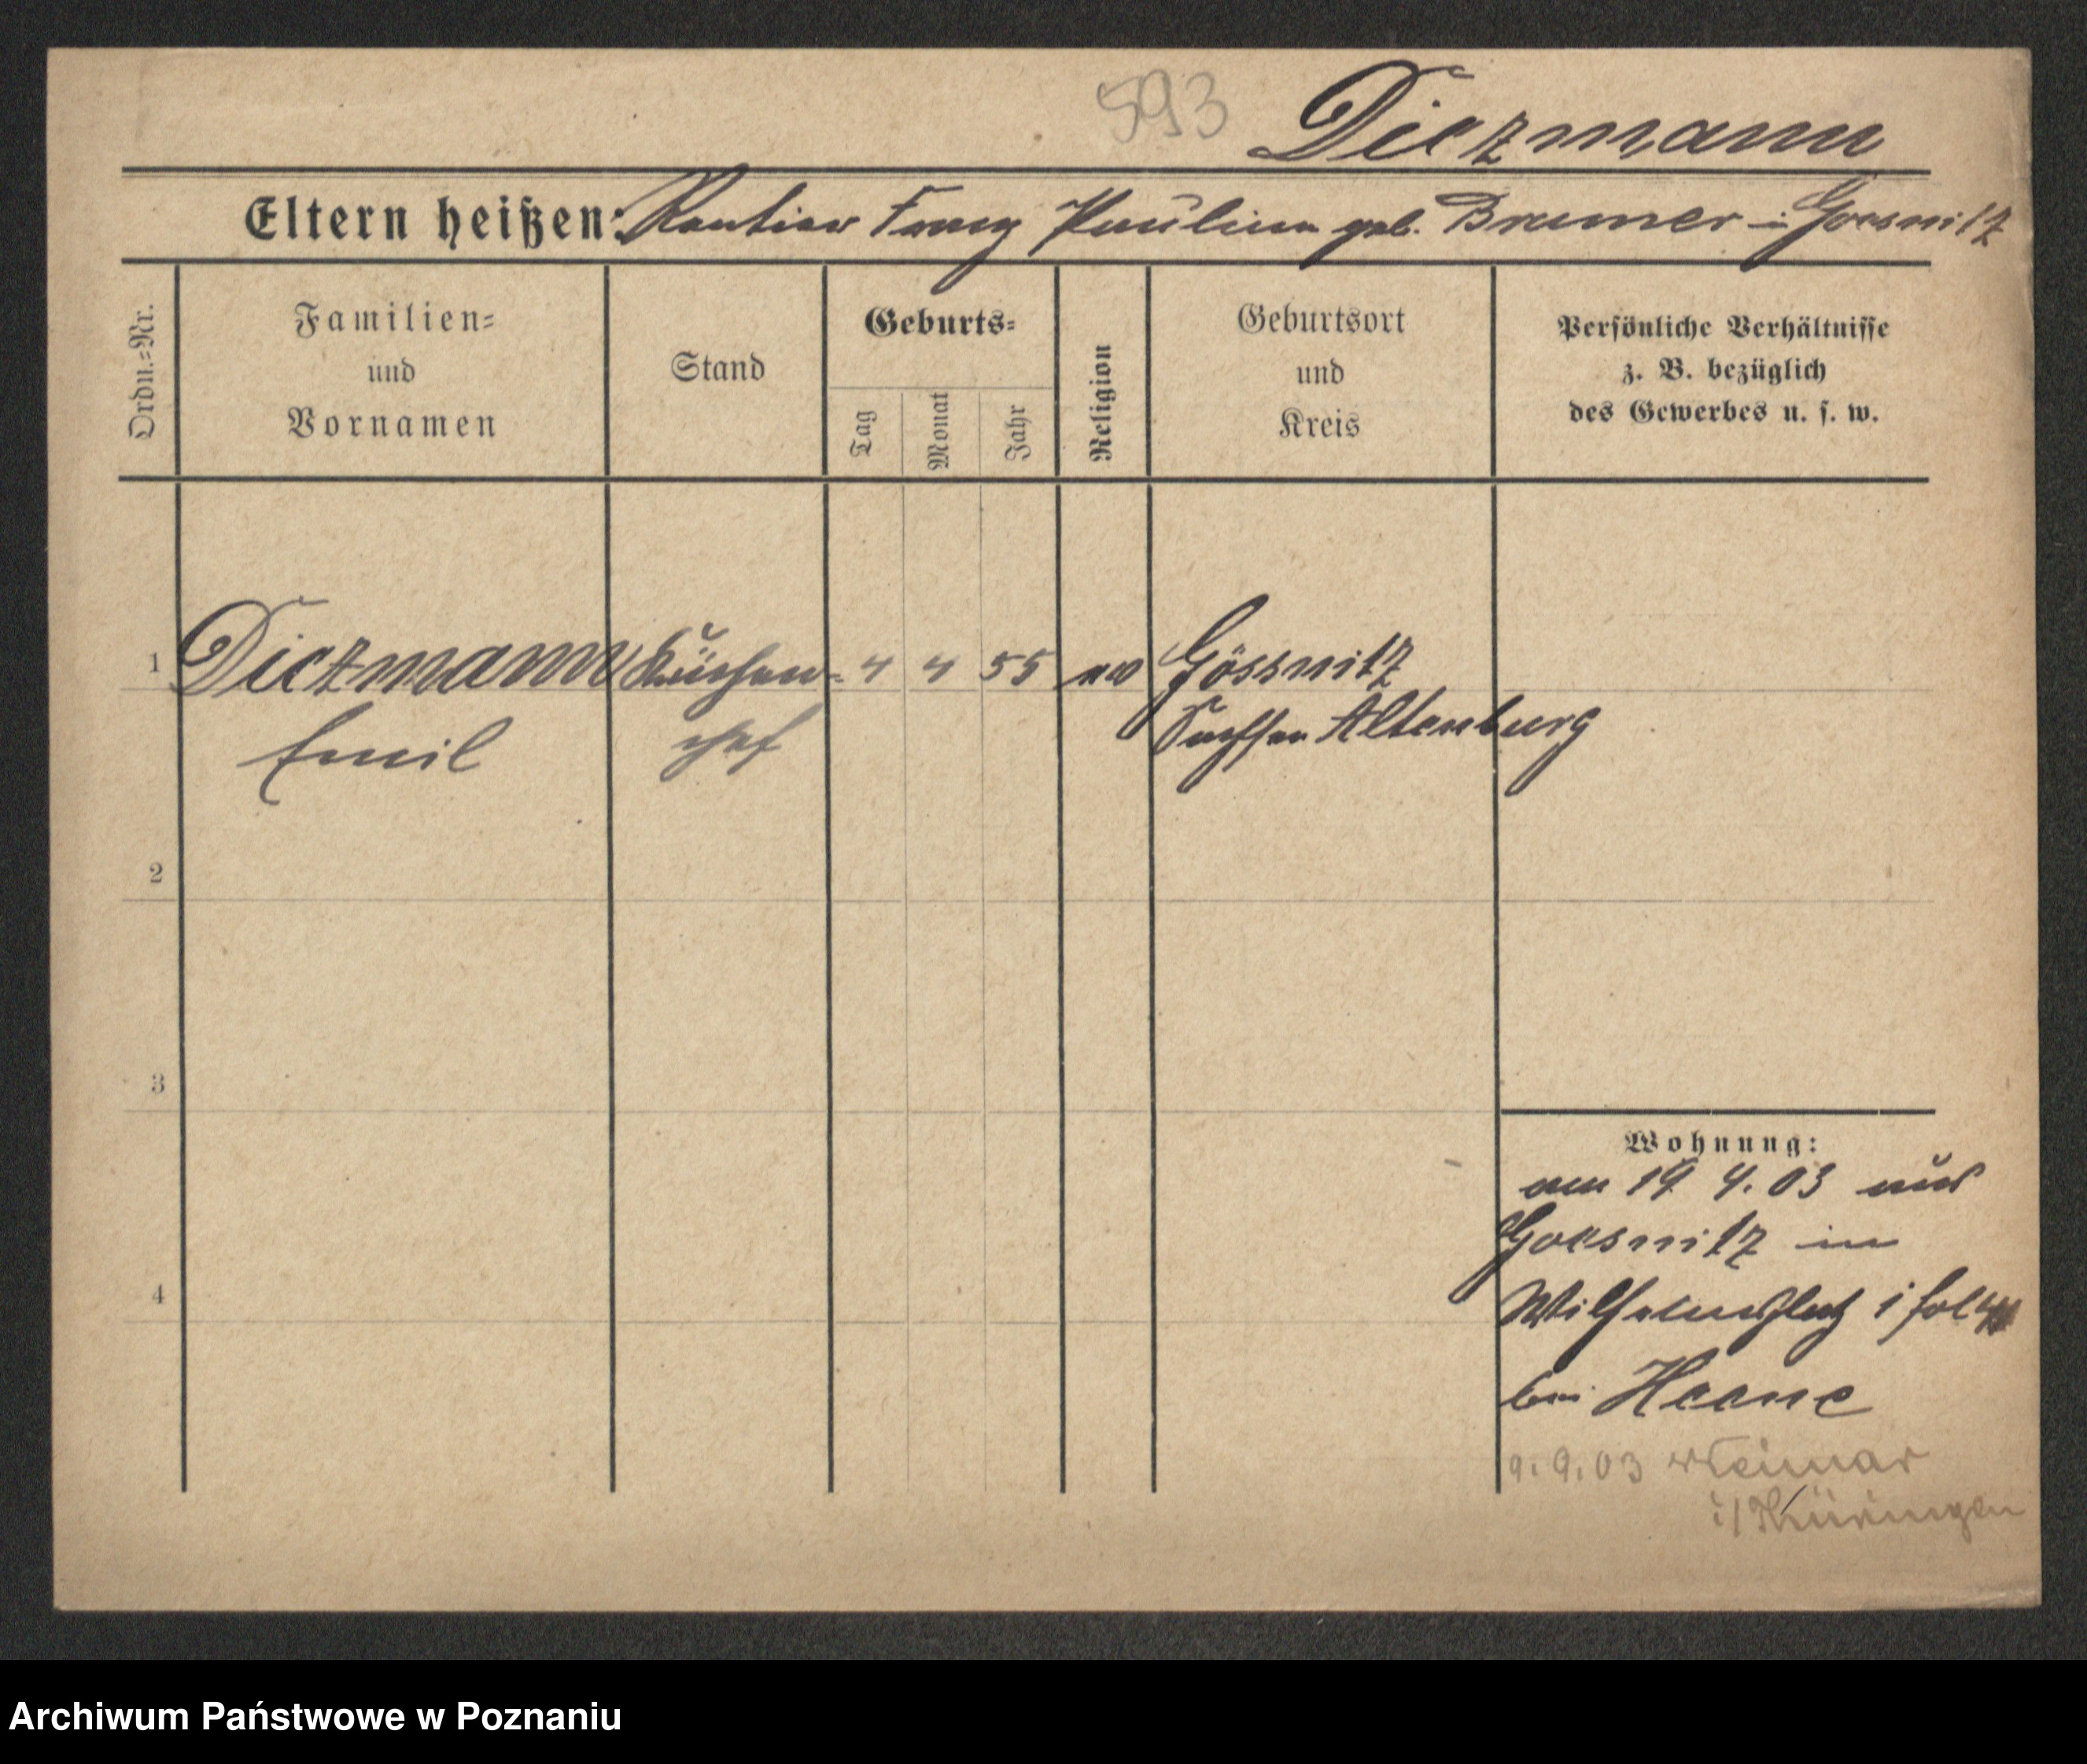 593 Dietzmann
Eltern heißen: Rentier Franz Pauline geb. Bremer in Goesnitz
Ordn.=Nr.
Familien=
und
Vornamen
Stand
Geburts=
Tag
Monat
Jahr
Religion
Geburtsort
und
Kreis
Persönliche Verhältnisse
z. B. bezüglich
des Gewerbes u. s. w.
1 Dietzmann Küchen= 4 4 55 ev Gössnitz
Emil chef Sachsen Altenburg
2
3
4
Wohnung:
am 19 4. 03 aus
Goesnitz in
Wilhelmsplatz 1
bei Heene
9. 9. 03 Weimar
i/Thüringen
Archiwum Państwowe w Poznaniu